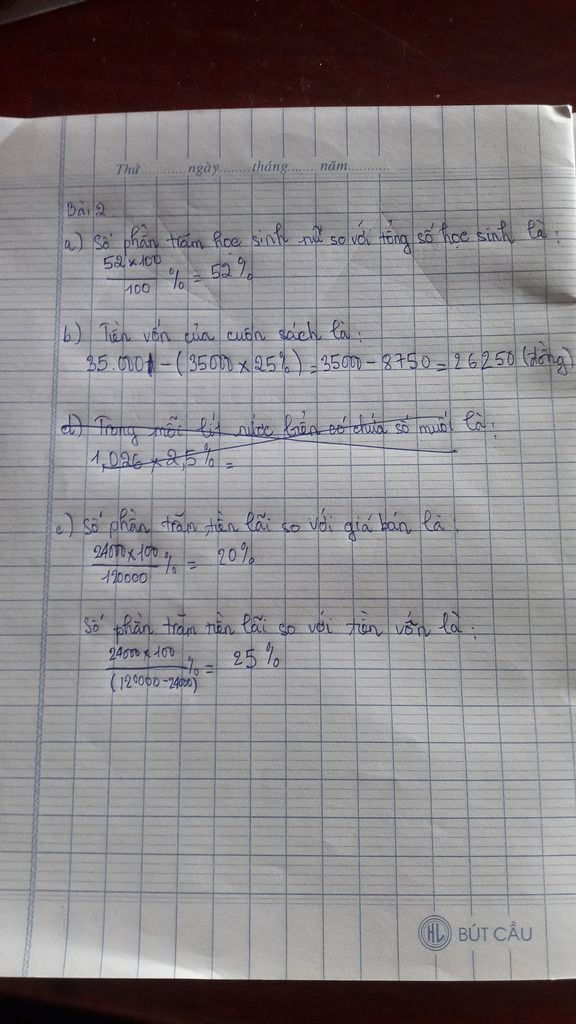 Thứ............ngày........tháng.......năm...........
Bài 2.
a) Số phần trăm học sinh nữ so với tổng số học sinh là:
52 x 100
100 % = 52%
b) Tiền vốn của cuốn sách là:
35.000 - (35000 x 25%) = 35000 - 8750 = 26250 (đồng)
d) Trong mỗi lít nước biển có chứa số muối là:
1,026 x 2,5% =
c) Số phần trăm tiền lãi so với giá bán là:
24000 x 100
120000 % = 20%
Số phần trăm tiền lãi so với tiền vốn là:
24000 x 100
(120000 - 24000) % = 25%
HL BÚT CẦU